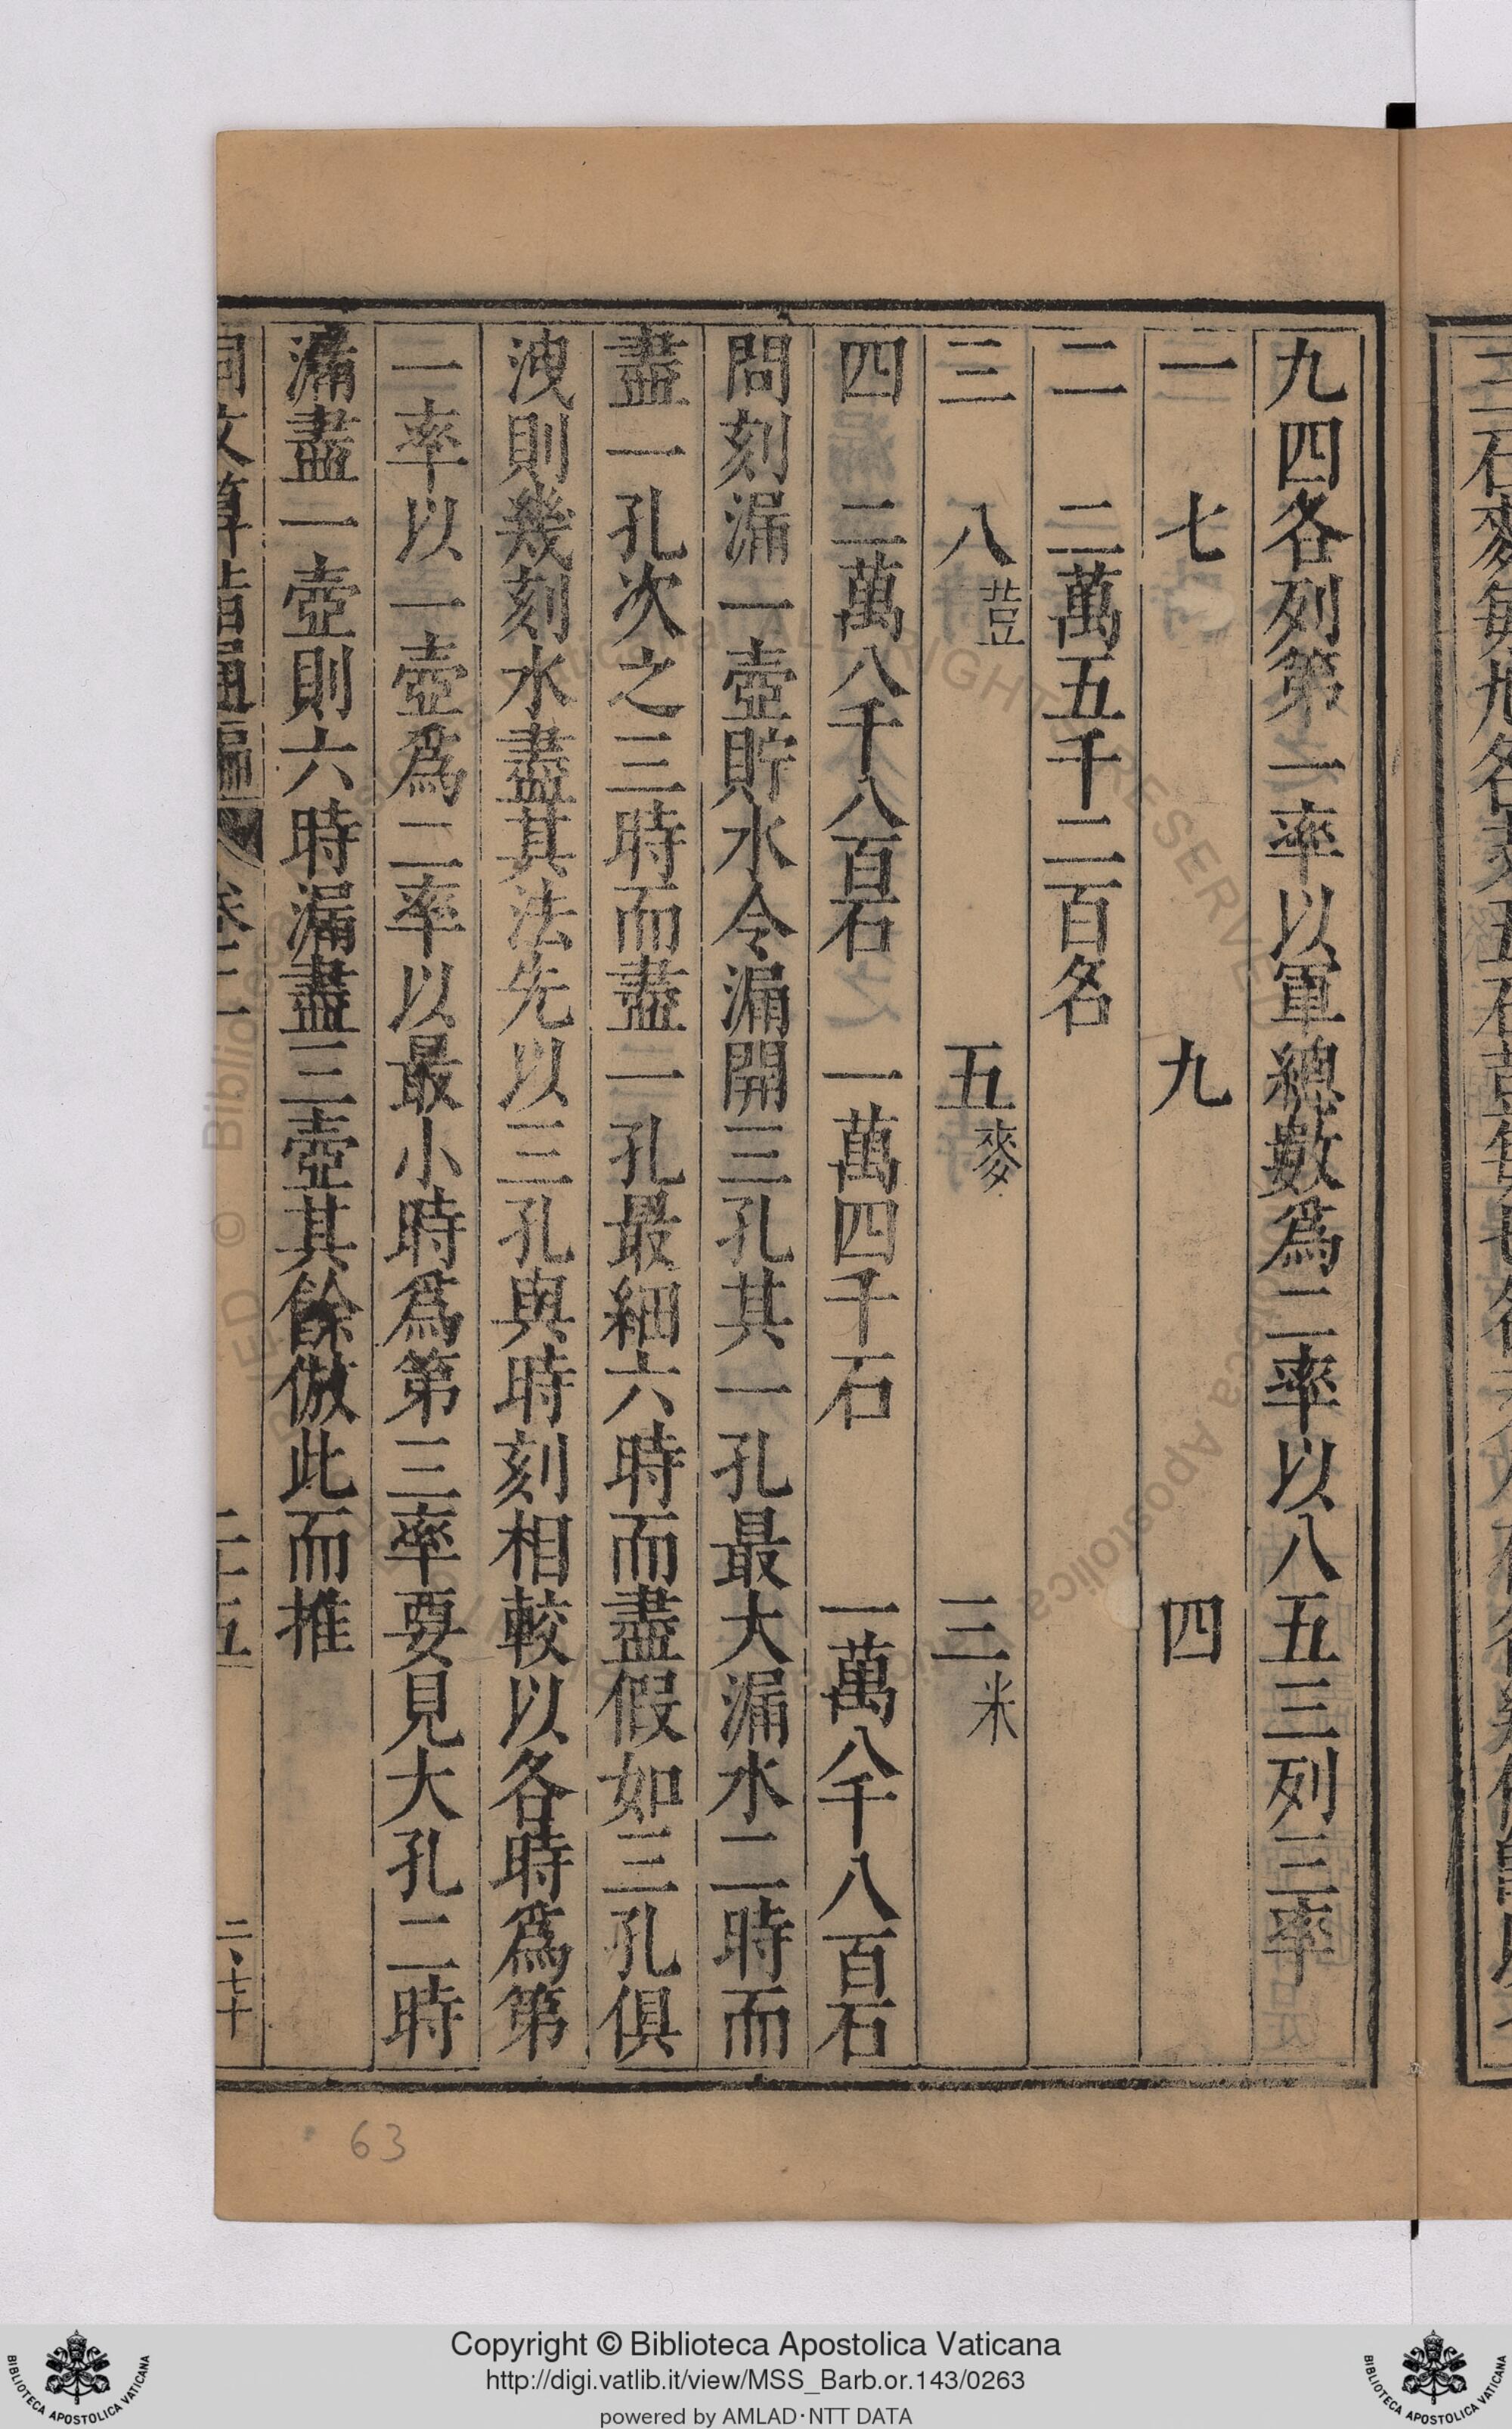 九四各列第一率以軍總數為二率以八五三列三率
一　七　九　四
二　二萬五千二百名
三　八荳　五麥　三米
四　二萬八千八百石　一萬四千石　一萬八千八百石
問刻漏一壺貯水令漏開三孔其一孔最大漏水二時而
盡一孔次之三時而盡一孔最細六時而盡假如三孔俱
洩則幾刻水盡其法先以三孔與時刻相較以各時爲第
一率以一壺爲二率以最小時爲第三率要見大孔二時
漏盡一壺則六時漏盡三壺其餘倣此而推
同文算指通編　卷二　二十五　二、七十
63
Copyright © Biblioteca Apostolica Vaticana
http://digi.vatlib.it/view/MSS_Barb.or.143/0263
powered by AMLAD·NTT DATA
BIBLIOTECA APOSTOLICA VATICANA
BIBLIOTECA APOSTOLICA VATICANA